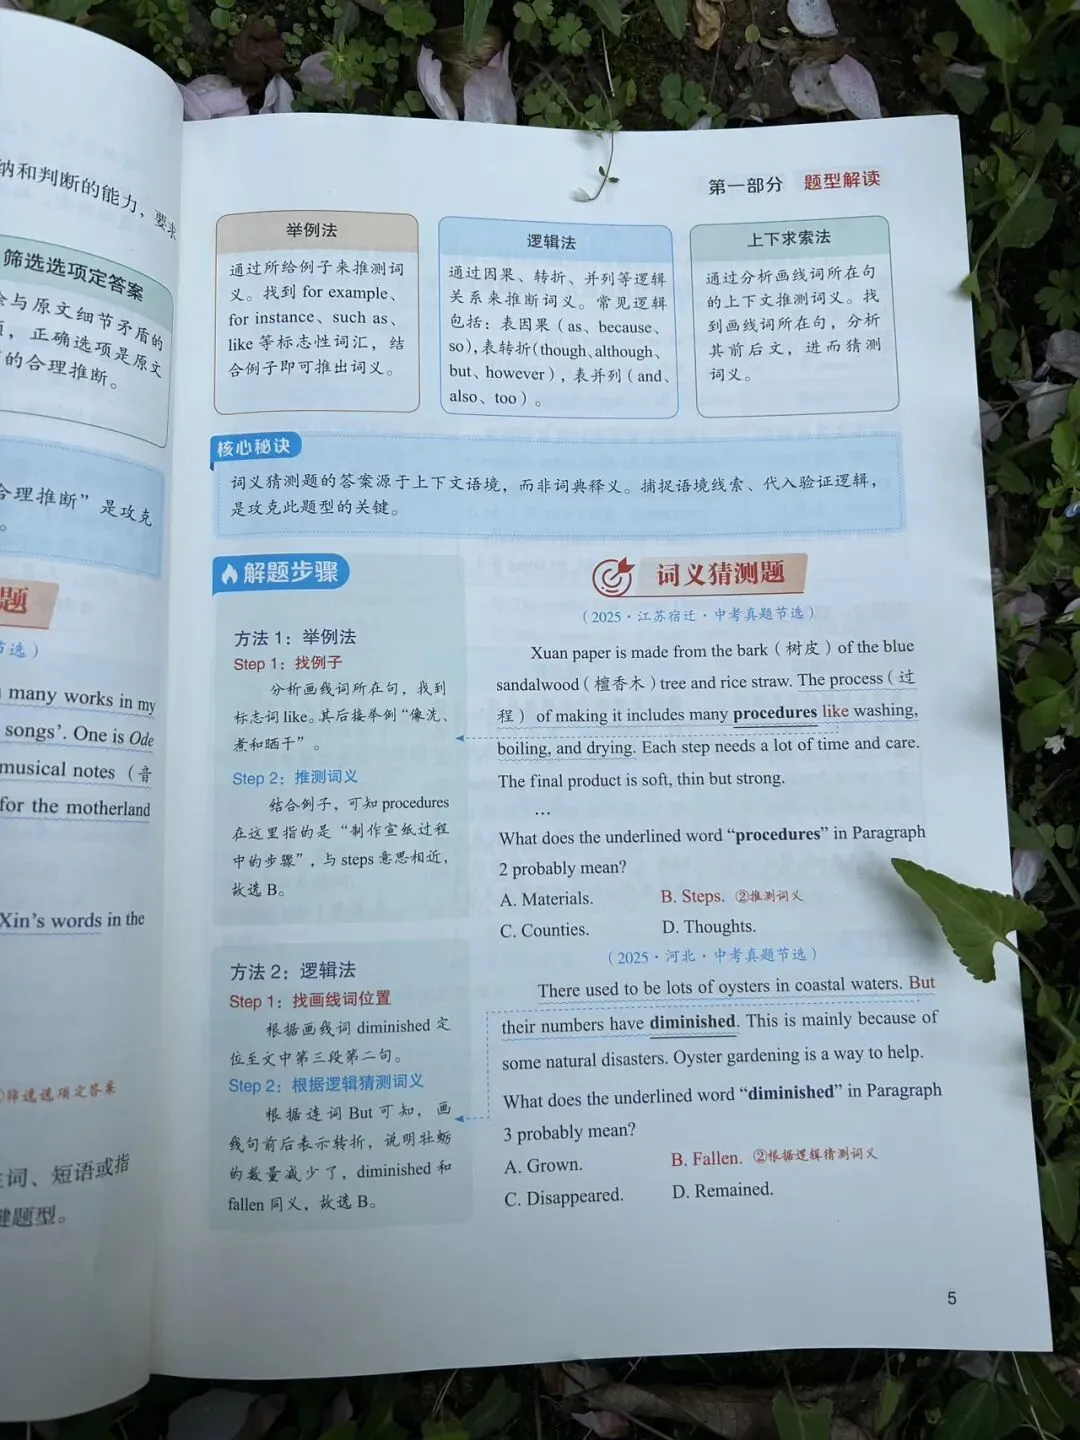 纳和判断的能力，要求
筛选选项定答案
与原文细节矛盾的
，正确选项是原文
的合理推断。
合理推断”是攻克
。
题
节选）
many works in my
songs’. One is Ode
musical notes（音
for the motherland
Xin’s words in the
筛选选项定答案
词、短语或指
键题型。
第一部分 题型解读
举例法
通过所给例子来推测词
义。找到 for example、
for instance、such as、
like 等标志性词汇，结
合例子即可推出词义。
逻辑法
通过因果、转折、并列等逻辑
关系来推断词义。常见逻辑
包括：表因果（as、because、
so），表转折（though、although、
but、however），表并列（and、
also、too）。
上下求索法
通过分析画线词所在句
的上下文推测词义。找
到画线词所在句，分析
其前后文，进而猜测
词义。
核心秘诀
词义猜测题的答案源于上下文语境，而非词典释义。捕捉语境线索、代入验证逻辑，
是攻克此题型的关键。
解题步骤
方法 1：举例法
Step 1：找例子
分析画线词所在句，找到
标志词 like。其后接举例“像洗、
煮和晒干”。
Step 2：推测词义
结合例子，可知 procedures
在这里指的是“制作宣纸过程
中的步骤”，与 steps 意思相近，
故选 B。
方法 2：逻辑法
Step 1：找画线词位置
根据画线词 diminished 定
位至文中第三段第二句。
Step 2：根据逻辑猜测词义
根据连词 But 可知，画
线句前后表示转折，说明牡蛎
的数量减少了，diminished 和
fallen 同义，故选 B。
词义猜测题
（2025·江苏宿迁·中考真题节选）
Xuan paper is made from the bark（树皮）of the blue
sandalwood（檀香木）tree and rice straw. The process（过
程） of making it includes many procedures like washing,
boiling, and drying. Each step needs a lot of time and care.
The final product is soft, thin but strong.
…
What does the underlined word “procedures” in Paragraph
2 probably mean?
A. Materials. B. Steps. ②推测词义
C. Counties. D. Thoughts.
（2025·河北·中考真题节选）
There used to be lots of oysters in coastal waters. But
their numbers have diminished. This is mainly because of
some natural disasters. Oyster gardening is a way to help.
What does the underlined word “diminished” in Paragraph
3 probably mean?
A. Grown. B. Fallen. ②根据逻辑猜测词义
C. Disappeared. D. Remained.
5